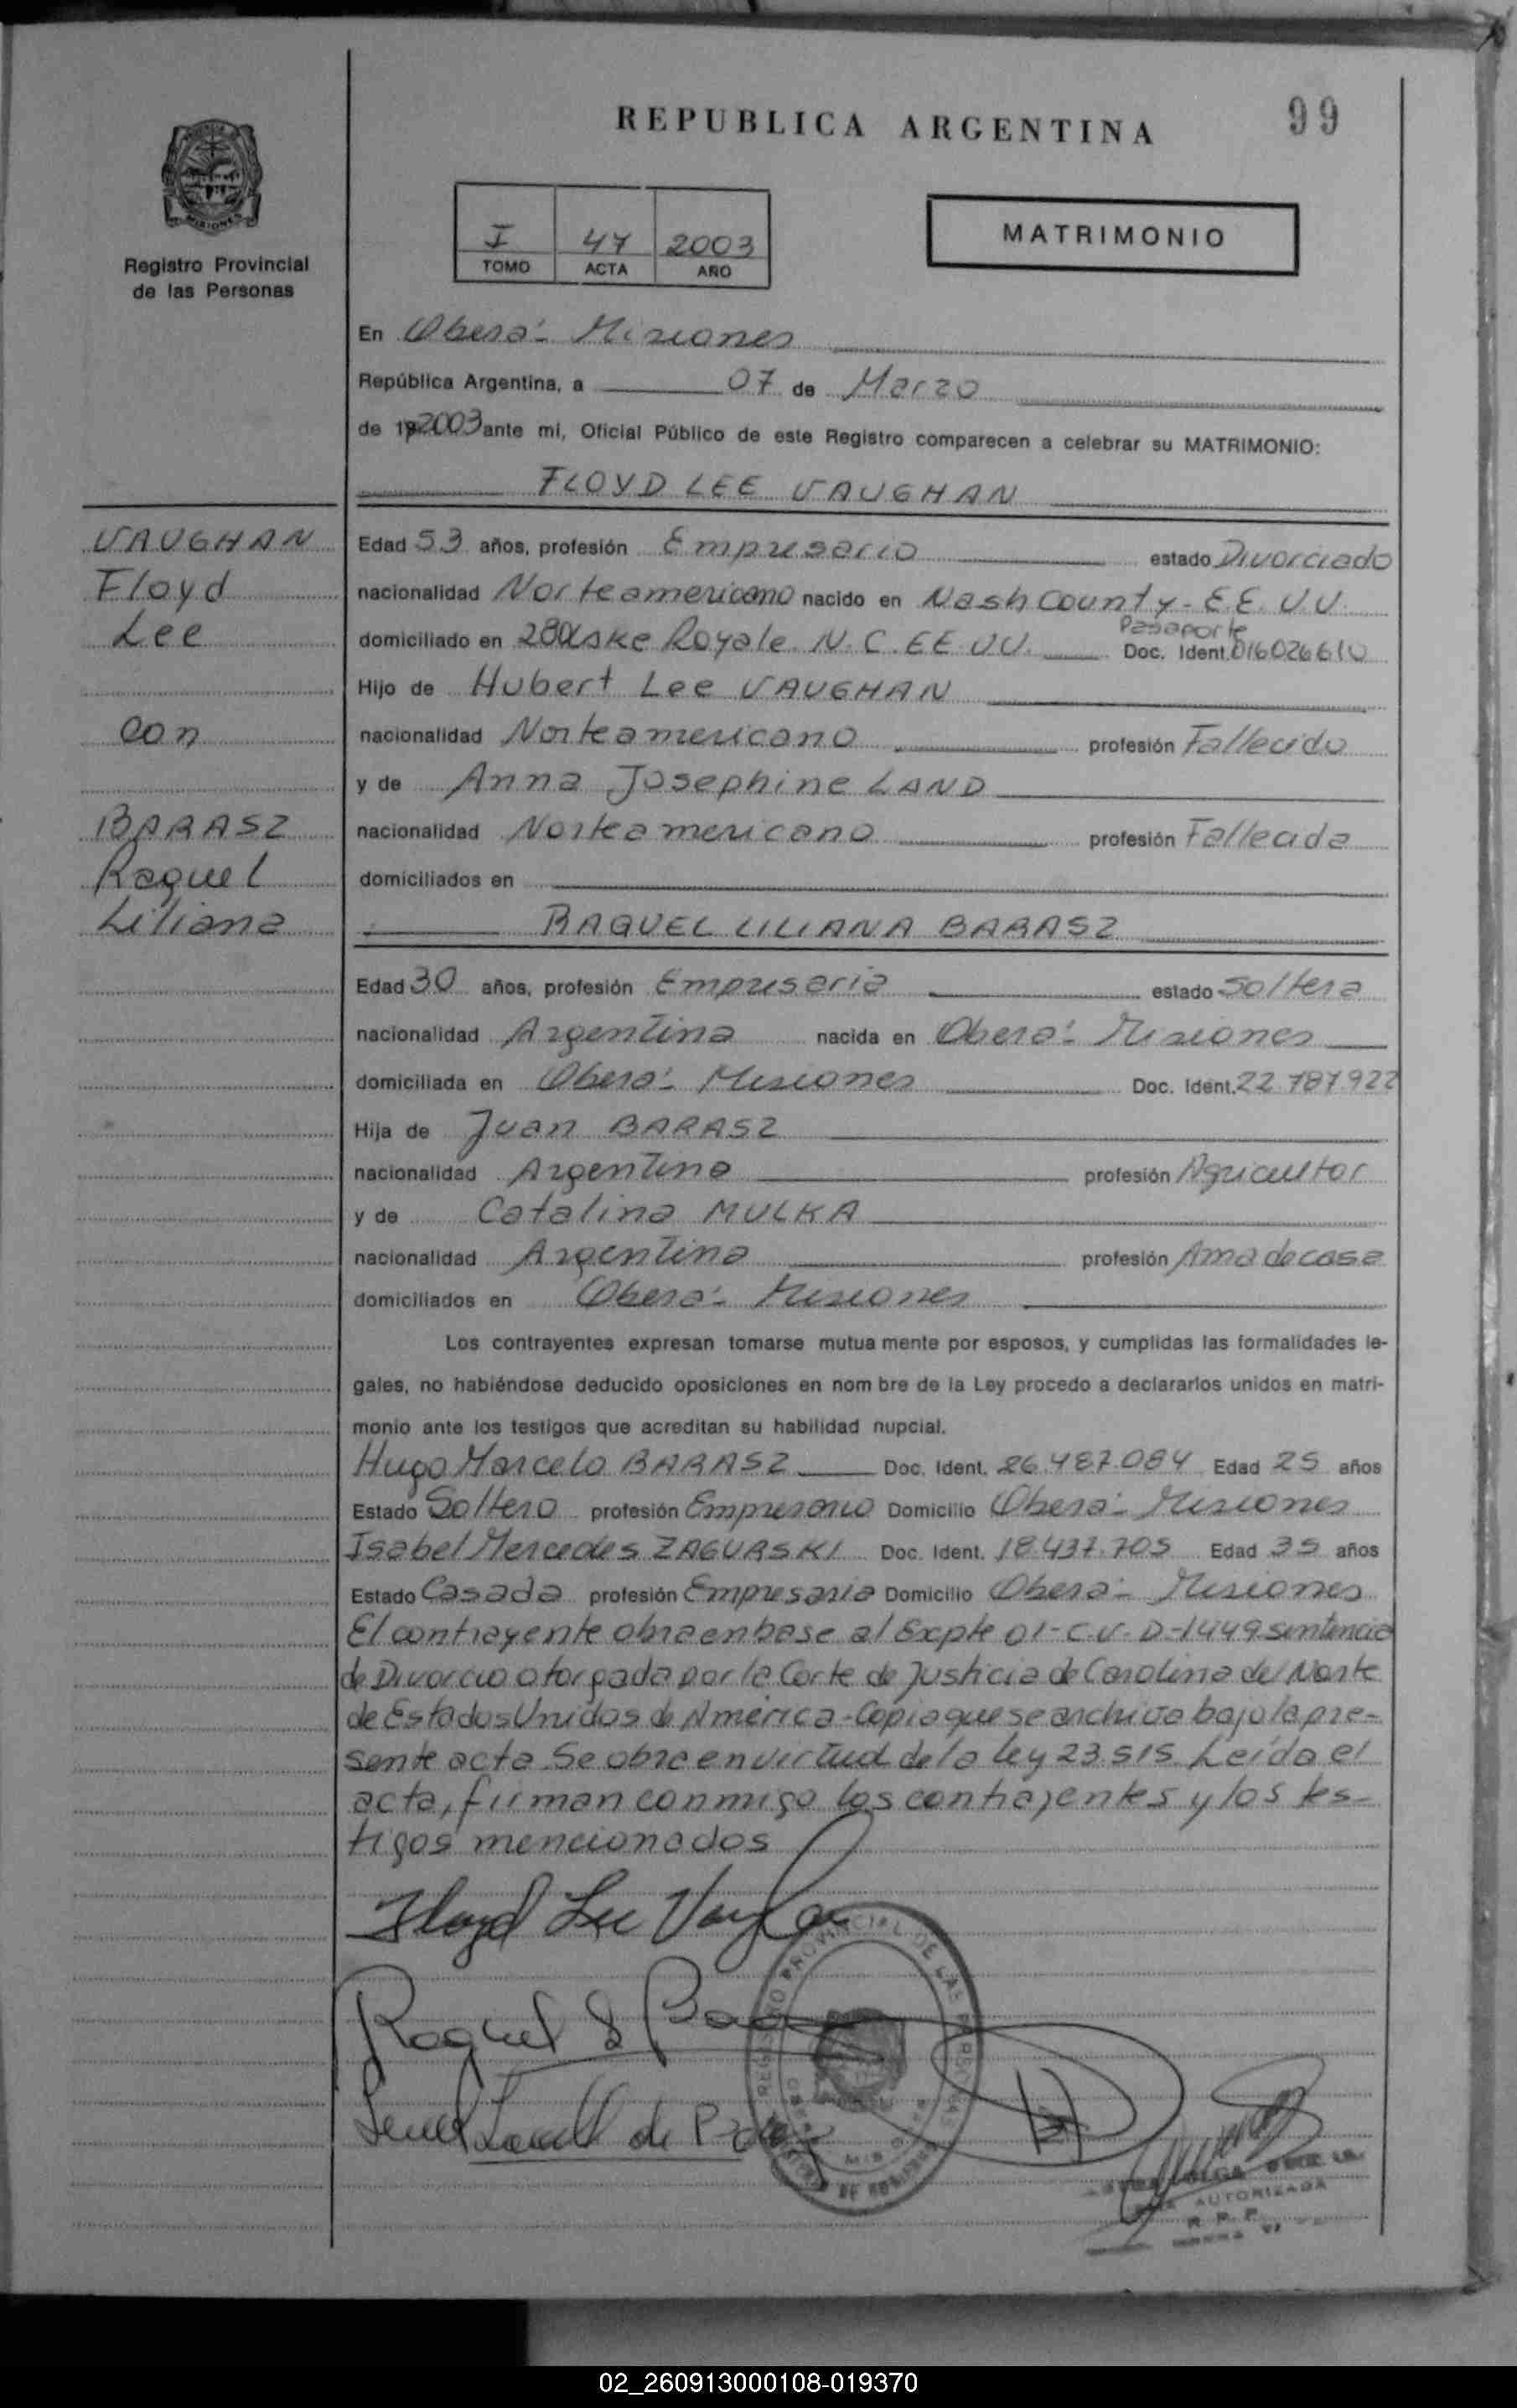 REPUBLICA ARGENTINA
99
MISIONES
Registro Provincial
de las Personas
I 47 2003
TOMO ACTA AÑO
MATRIMONIO
En Oberá - Misiones
República Argentina, a 07 de Marzo
de 19 2003 ante mi, Oficial Público de este Registro comparecen a celebrar su MATRIMONIO:
FLOYD LEE VAUGHAN
VAUGHAN
Floyd
Lee
con
BARASZ
Raquel
Liliana
Edad 53 años, profesión Empresario estado Divorciado
nacionalidad Norteamericano nacido en Nash County - E.E.U.U.
domiciliado en Royale. N.C. EE.UU. Pasaporte Doc. Ident. 016026610
Hijo de Hubert Lee VAUGHAN
nacionalidad Norteamericano profesión Fallecido
y de Anna Josephine LAND
nacionalidad Norteamericano profesión Fallecida
domiciliados en
RAQUEL LILIANA BARASZ
Edad 30 años, profesión Empresaria estado Soltera
nacionalidad Argentina nacida en Oberá - Misiones
domiciliada en Oberá - Misiones Doc. Ident. 22.787.922
Hija de Juan BARASZ
nacionalidad Argentino profesión Agricultor
y de Catalina MULKA
nacionalidad Argentina profesión Ama de casa
domiciliados en Oberá - Misiones
Los contrayentes expresan tomarse mutua mente por esposos, y cumplidas las formalidades le-
gales, no habiéndose deducido oposiciones en nom bre de la Ley procedo a declararlos unidos en matri-
monio ante los testigos que acreditan su habilidad nupcial.
Hugo Marcelo BARASZ Doc. Ident. 26.487.084 Edad 25 años
Estado Soltero profesión Empresario Domicilio Oberá - Misiones
Isabel Mercedes ZAGURSKI Doc. Ident. 18.437.705 Edad 35 años
Estado Casada profesión Empresaria Domicilio Oberá - Misiones
El contrayente obra en base al Expte 01-C.V.D-1449 sentencia
de Divorcio otorgada por la Corte de Justicia de Carolina del Norte
de Estados Unidos de América - Copia que se archiva bajo la pre-
sente acta. Se obra en virtud de la ley 23.515. Leída el
acta, firman conmigo los contrayentes y los tes-
tigos mencionados
Floyd Lee Vaughan
Raquel
REGISTRO PROVINCIAL DE LAS PERSONAS
AUTORIZADA
R. P. P.
02_260913000108-019370